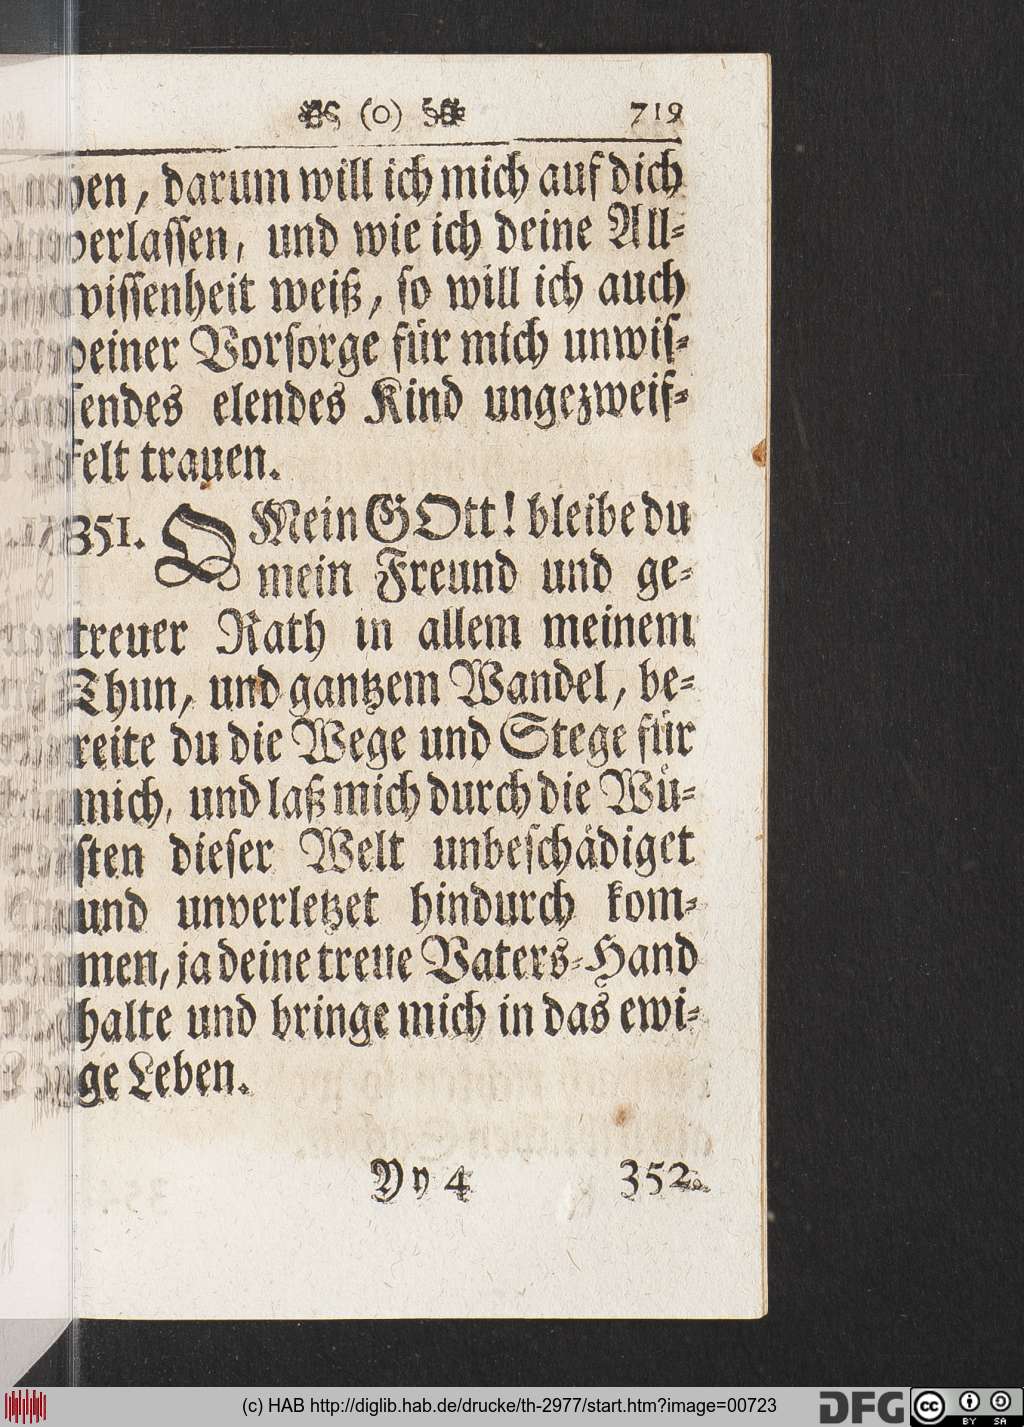 (o) 719
ben, darum will ich mich auf dich
verlassen, und wie ich deine All-
wissenheit weiß, so will ich auch
deiner Vorsorge für mich unwis-
sendes elendes Kind ungezweif-
felt trauen.
351. O Mein GOtt! bleibe du
mein Freund und ge-
treuer Rath in allem meinem
Thun, und gantzem Wandel, be-
reite du die Wege und Stege für
mich, und laß mich durch die Wü-
sten dieser Welt unbeschädiget
und unverletzet hindurch kom-
men, ja deine treue Vaters-Hand
halte und bringe mich in das ewi-
ge Leben.
Yy 4 352.
(c) HAB http://diglib.hab.de/drucke/th-2977/start.htm?image=00723
DFG cc BY SA